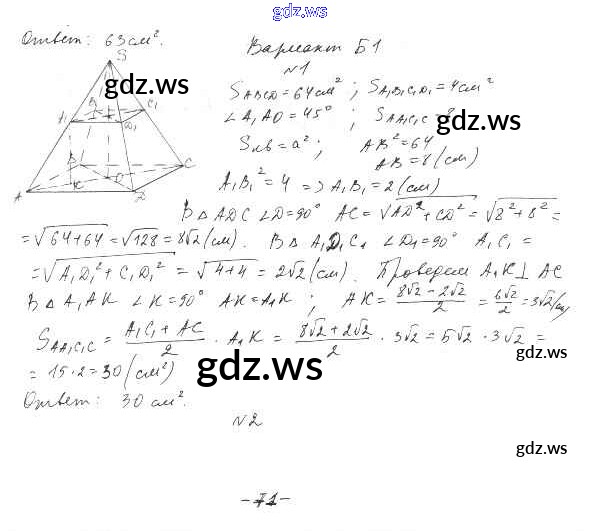 gdz.ws
Ответ: 63 см².
Вариант Б1
№1
S
A₁ B₁ C₁ D₁
A B C D K O
gdz.ws
S ABCD = 64 см² ; S A₁B₁C₁D₁ = 4 см²
∠A₁AO = 45° ; S AA₁C₁C - ?
gdz.ws
Sкв = a² ; AB² = 64
AB = 8 (см)
A₁B₁² = 4 => A₁B₁ = 2 (см)
В △ ADC ∠D = 90° AC = √AD² + CD² = √8² + 8² =
= √64+64 = √128 = 8√2 (см). В △ A₁D₁C₁ ∠D₁ = 90° A₁C₁ =
= √A₁D₁² + C₁D₁² = √4+4 = 2√2 (см). Проведем A₁K ⊥ AC
В △ A₁AK ∠K = 90° AK = A₁K ; AK = 8√2 - 2√2 / 2 = 6√2 / 2 = 3√2 (см)
S AA₁C₁C = A₁C₁ + AC / 2 · A₁K = 8√2 + 2√2 / 2 · 3√2 = 5√2 · 3√2 =
= 15·2 = 30 (см²)
gdz.ws
gdz.ws
Ответ: 30 см².
№2
gdz.ws
-71-
gdz.ws